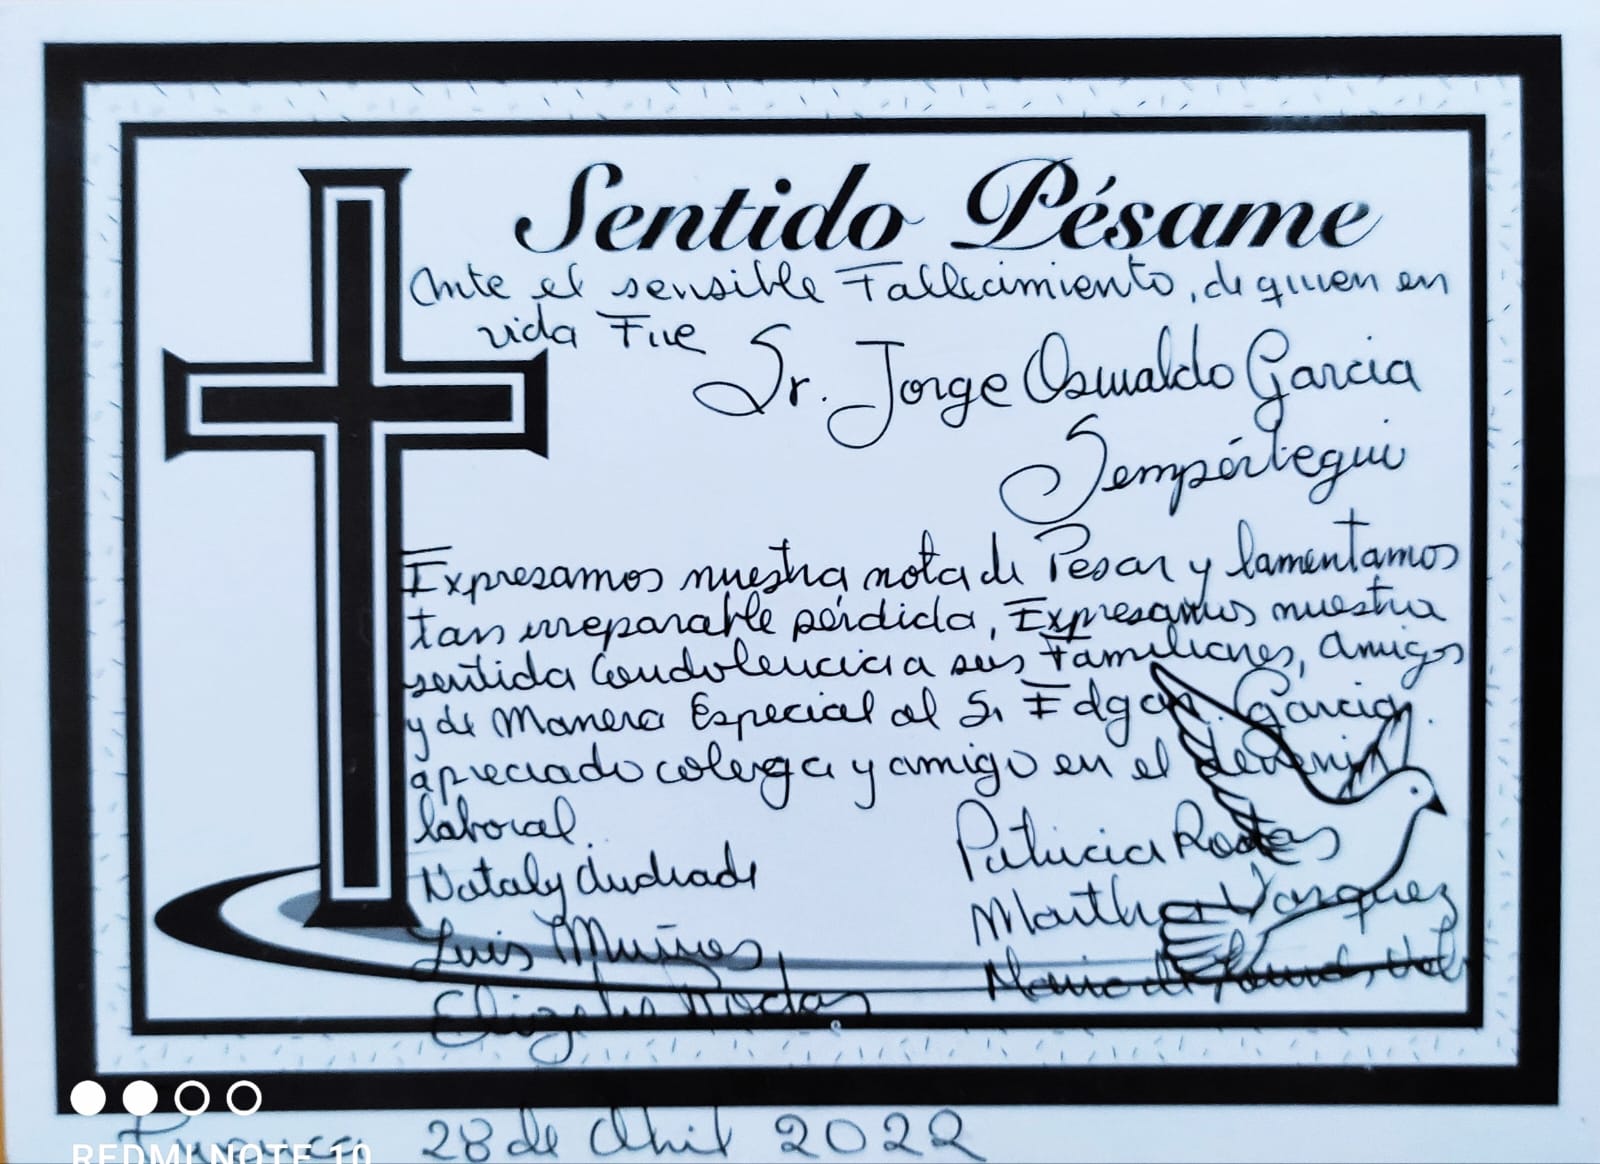 Sentido Pésame
Ante el sensible Fallecimiento, de quien en
vida Fue
Sr. Jorge Oswaldo Garcia
Sempértegui
Expresamos nuestra nota de Pesar y lamentamos
tan irreparable pérdida, Expresamos nuestra
sentida Condolencia a sus Familiares, amigos
y de Manera Especial al Sr Edgar. Garcia.
apreciado colega y amigo en el devenir
laboral.
Nataly Andrade
Patricia Rodas
Luis Muñoz
Martha Vasquez
Maria de
Rodas
28 de Abril 2022
REDMI NOTE 10